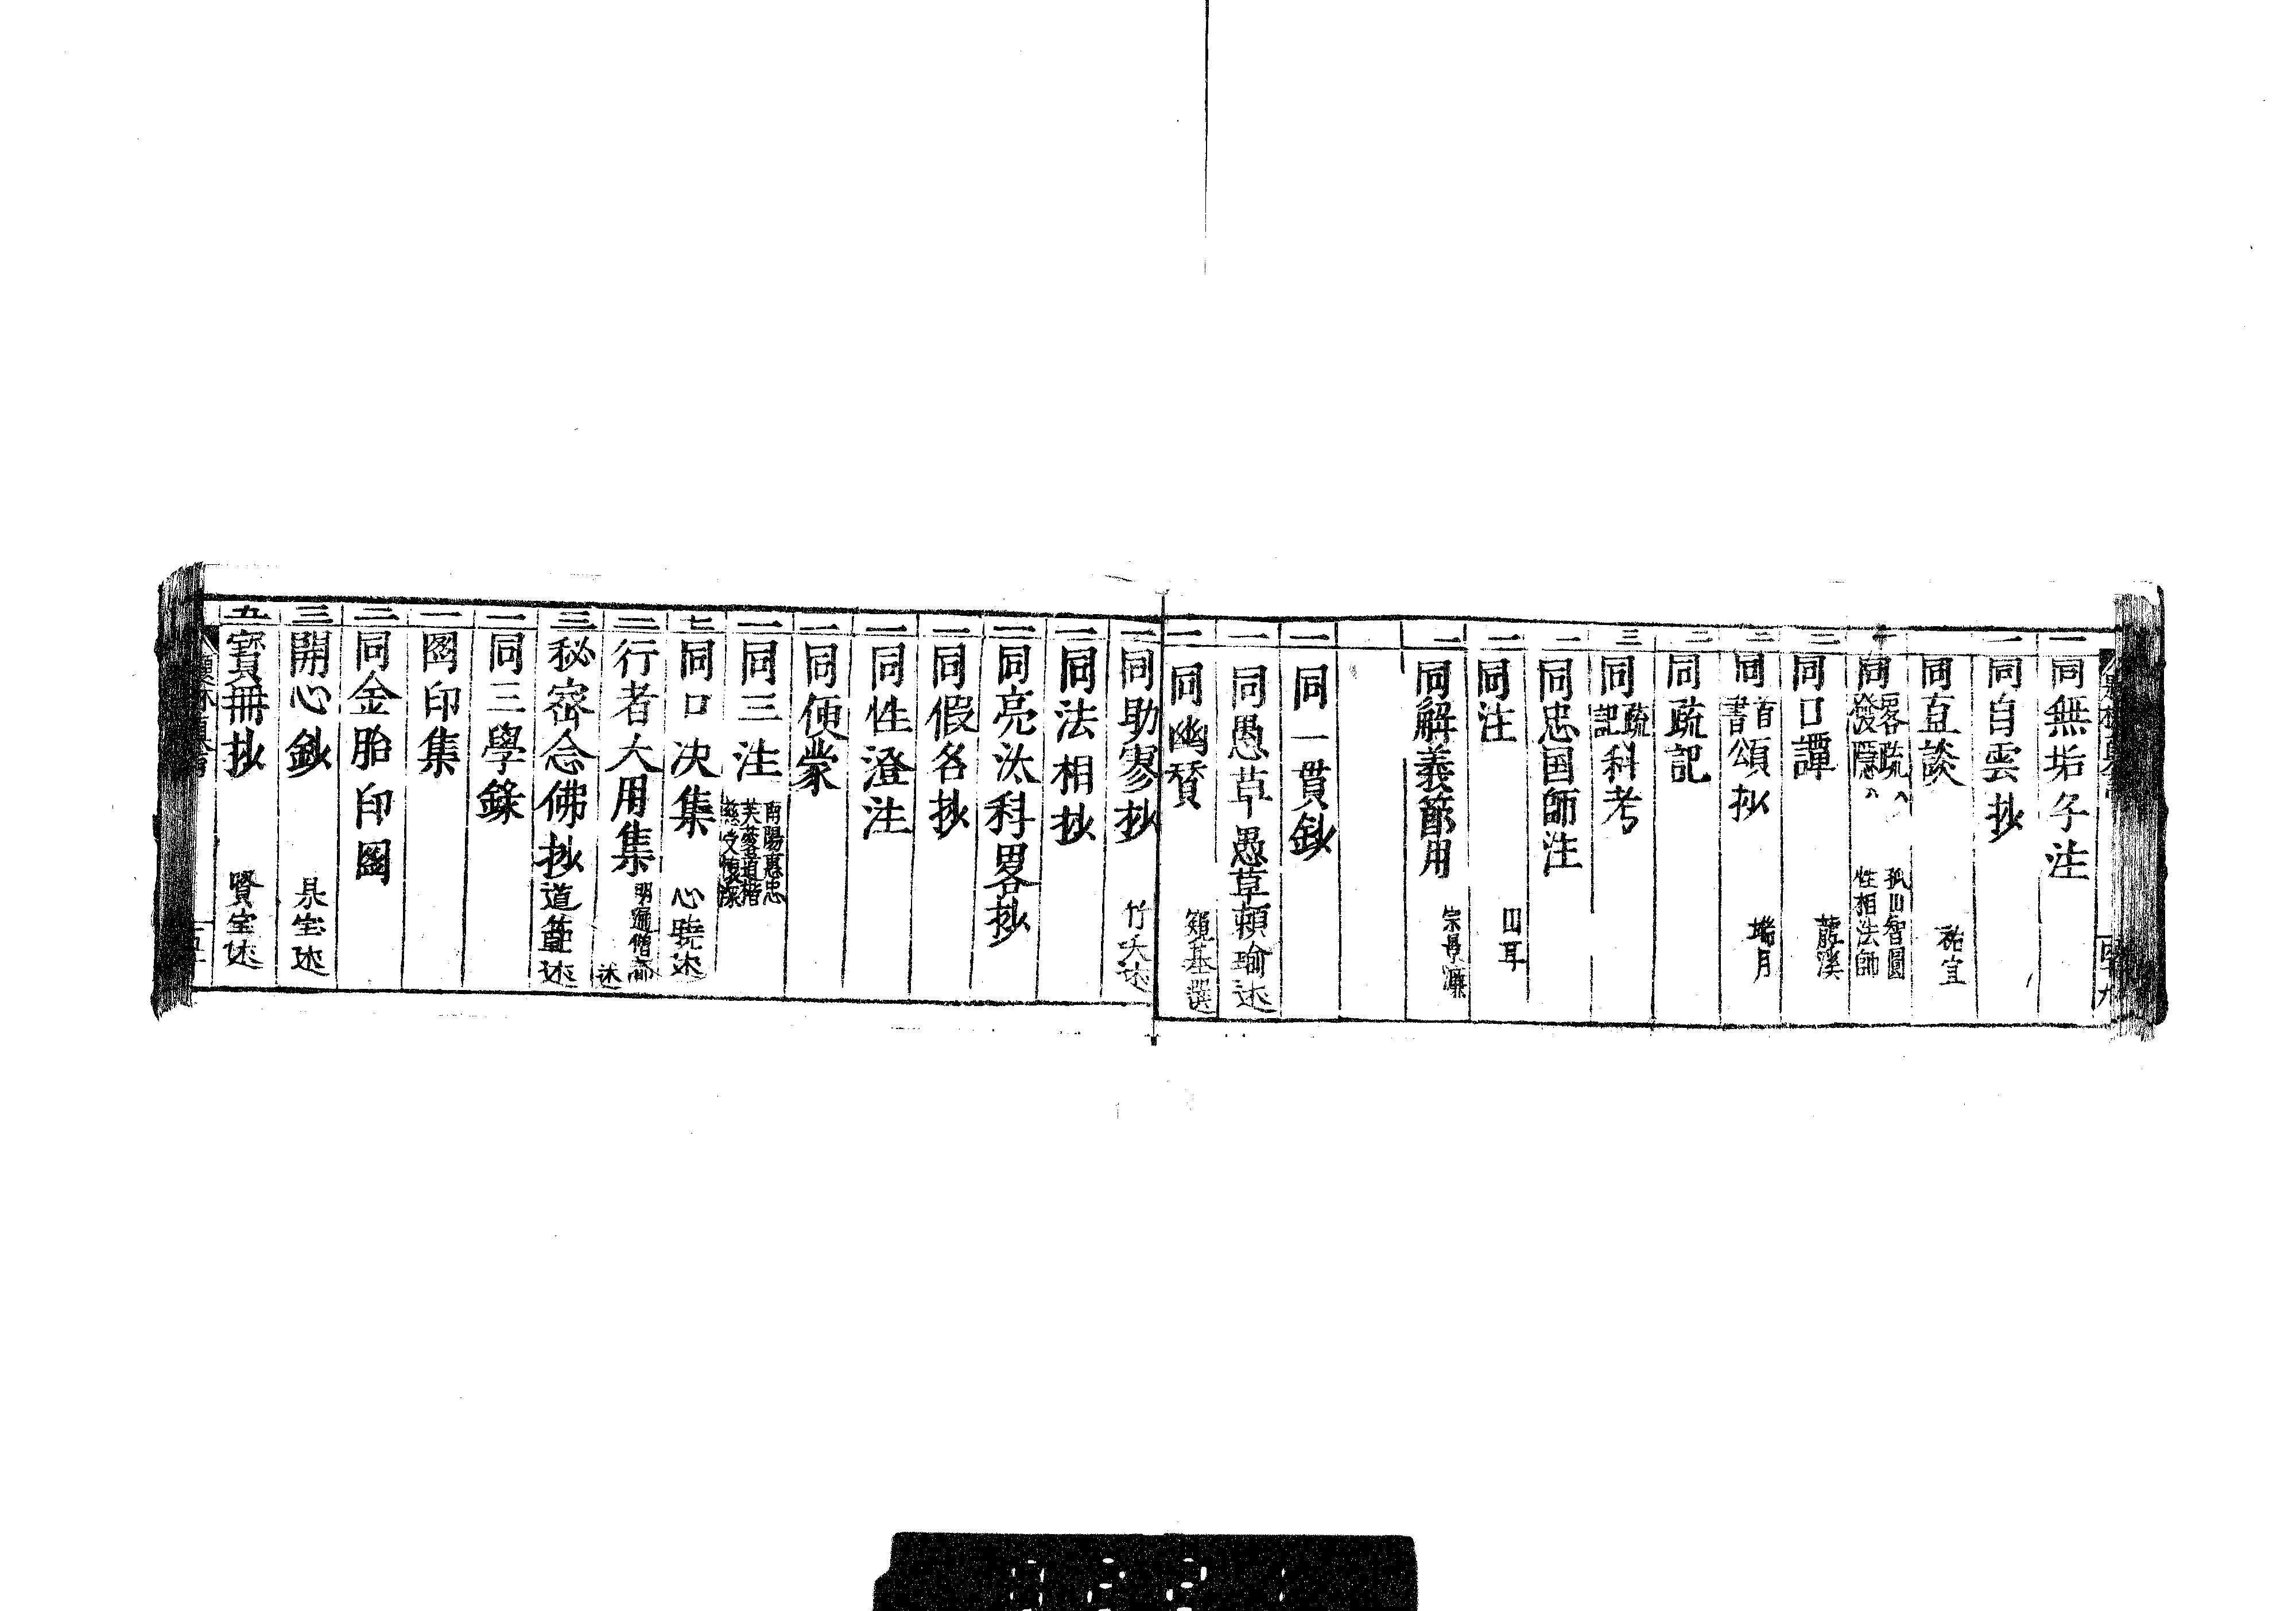 一 同無垢子注
一 同自雲抄
同直談 祐宜
同畧疏 發隱 孤山智圓 性相法師
二 同口譚 龍溪
二 同首書頌抄 瑞月
二 同疏記
三 同疏記科考
二 同忠国師注
一 同注 四耳
一 同解義節用 宗景濂
一 同一貫鈔
一 同愚草愚草頼瑜述
二 同幽賛 窺基選
一 同助寥抄 竹天述
一 同法相抄
二 同亮汰科畧抄
一 同假名抄
一 同性澄注
一 同便蒙
一 同三注 南陽惠忠 芙蓉道楷 慈受懷深
七 同口决集 心曉述
二 行者大用集 明遍僧都述
三 秘密念佛抄道範述
一 同三學錄
一 圖印集
二 同金胎印圖
三 開心鈔 杲宝述
九 寳冊抄 賢宝述